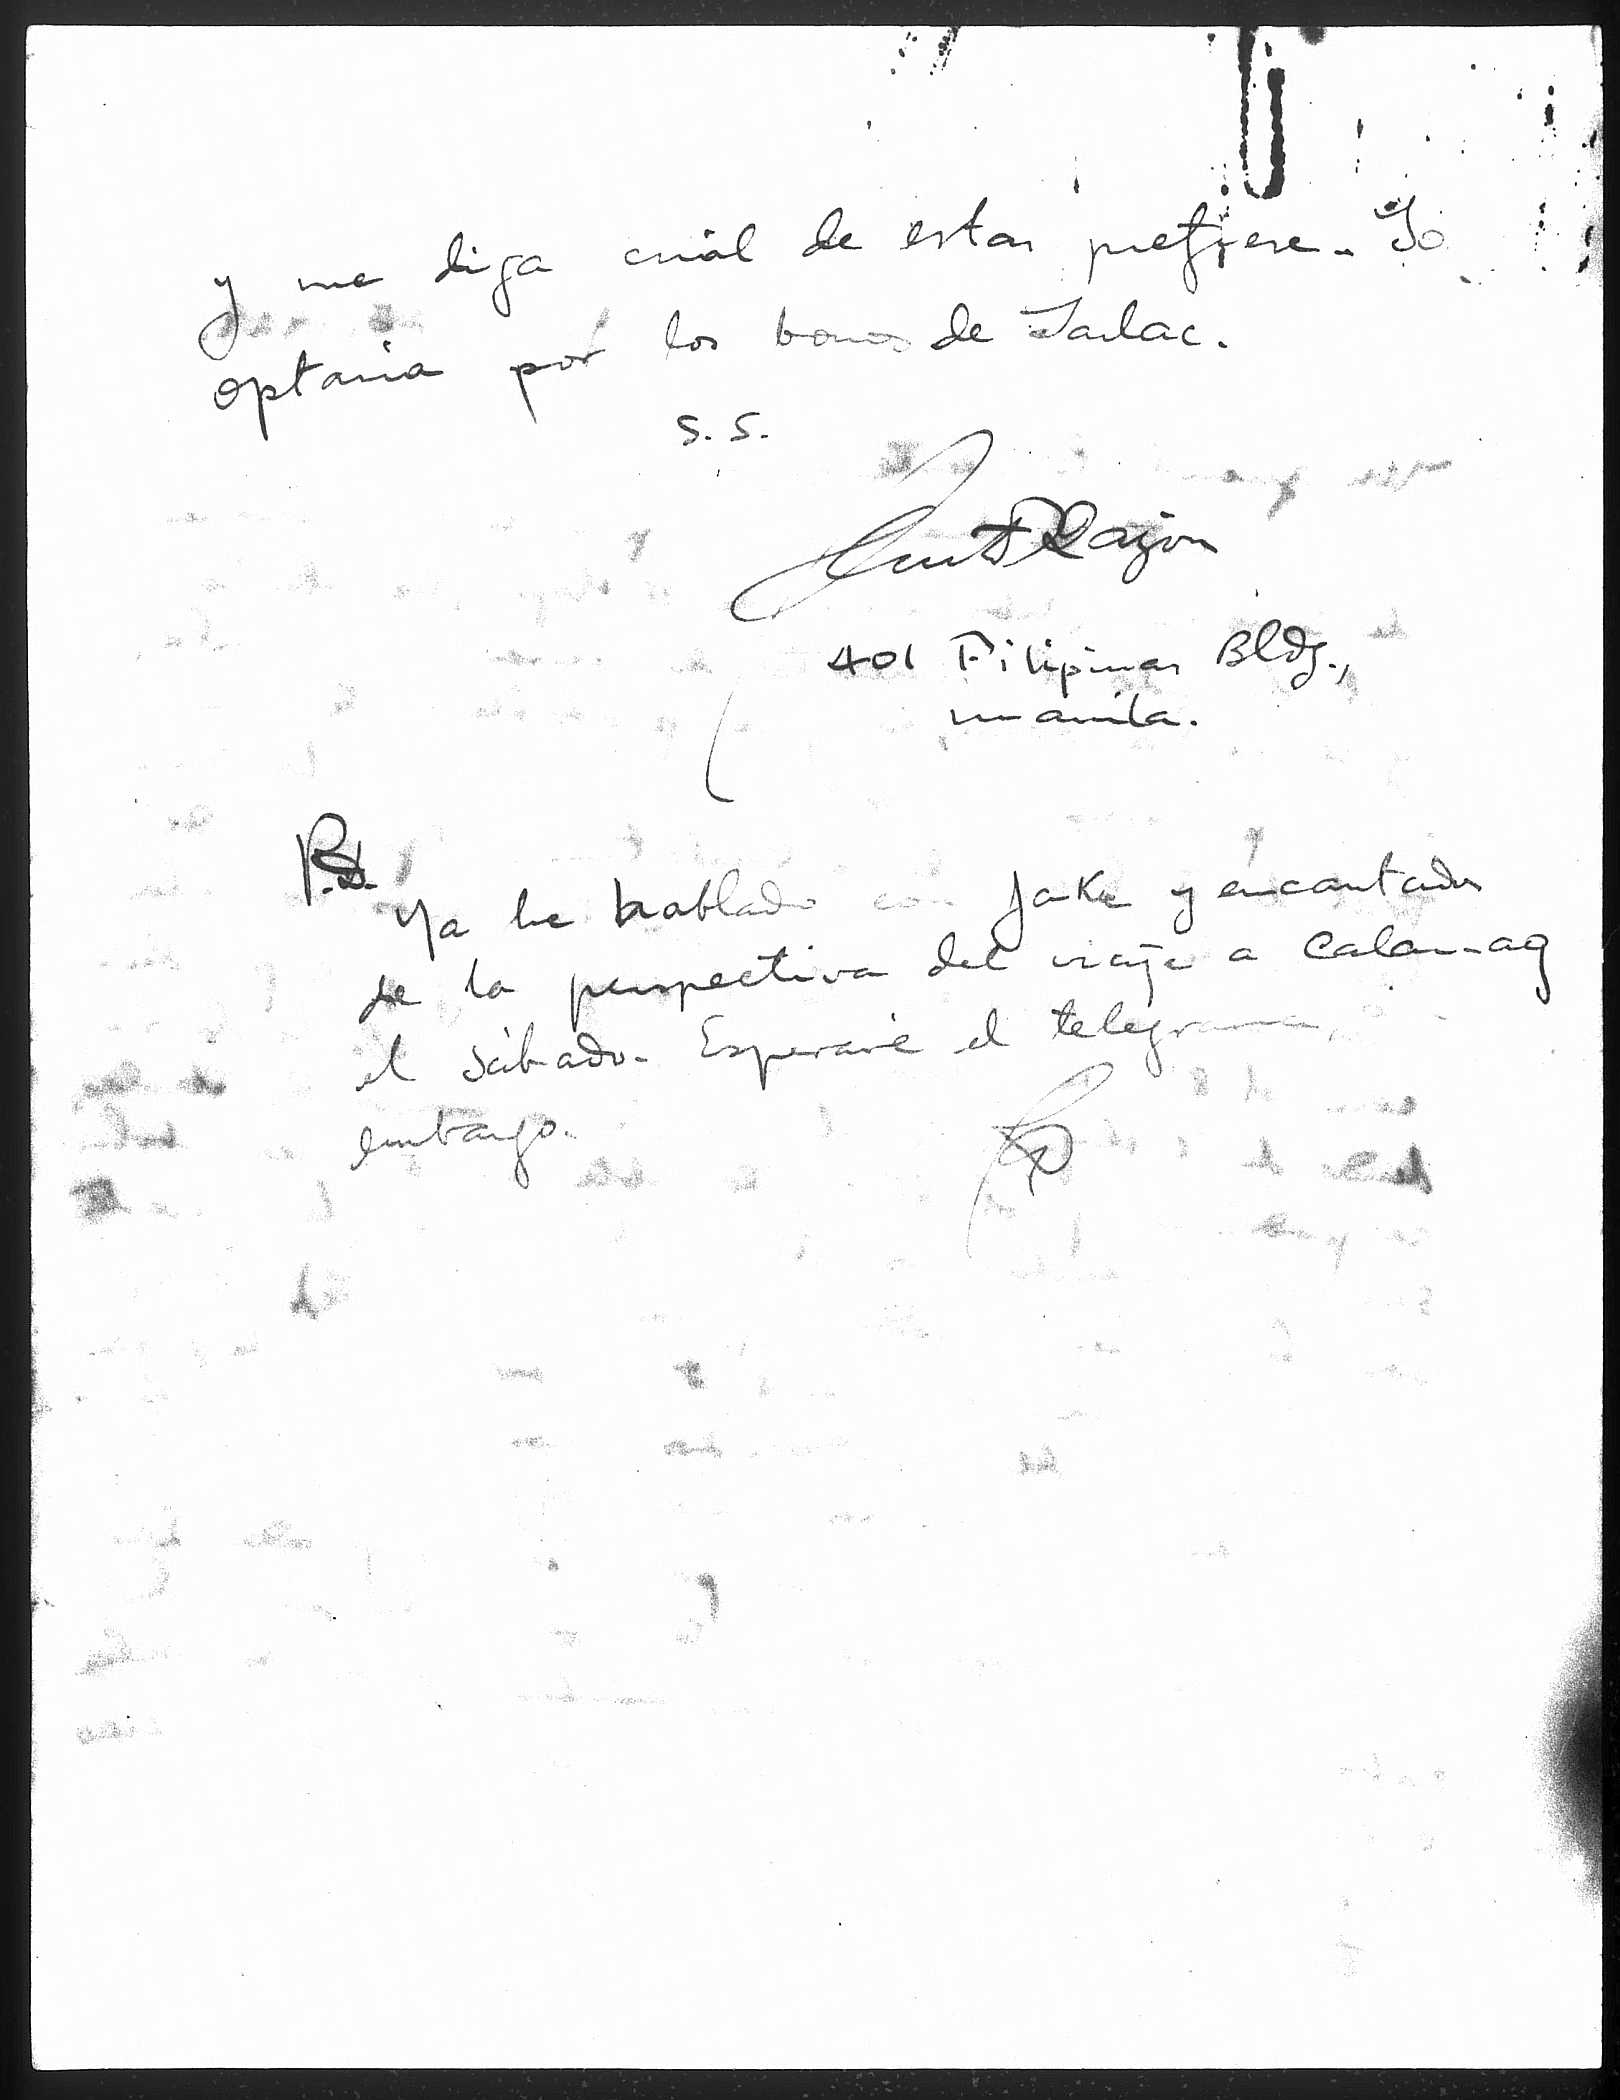 y me diga cuál de estas prefiere. Yo
optaria por los bonos de Tarlac.
S. S.
Razon
401 Filipinas Bldg.,
Manila.
P.D. Ya he hablado con Jake y encantados
de la perspectiva del viaje a Calauag
el sábado. Esperaré el telegrama,
embargo.